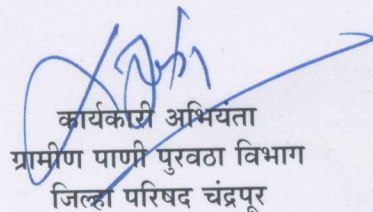 कार्यकारी अभियंता
ग्रामीण पाणी पुरवठा विभाग
जिल्हा परिषद चंद्रपूर